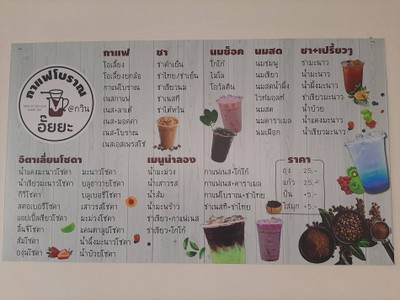 กาแฟโบราณ
@ทวิน
อั๊ยยะ
กาแฟ
โอเลี้ยง
โอเลี้ยงยกล้อ
กาแฟโบราณ
เนสกาแฟ
เนส-ลาเต้
เนส+มอคค่า
เนส+โบราณ
เนสเอสเพรสโซ่
ชา
ชาดำเย็น
ชาไทย/ชาเย็น
ชาเขียวนม
ชาเนสที
ชาไต้หวัน
นมช็อค
โกโก้
ไมโล
โอวัลติน
นมสด
นมชมพู
นมเขียว
นมสดน้ำผึ้ง
โวท์มอลท์
นมสด
นมคาราเมล
นมเผือก
ชา+เปรี้ยวๆ
ชามะนาว
น้ำมะนาว
น้ำผึ้งมะนาว
ชาเขียวมะนาว
น้ำบ๊วย
น้ำแดงมะนาว
น้ำเขียวมะนาว
อิตาเลี่ยนโซดา
น้ำแดงมะนาวโซดา
น้ำเขียวมะนาวโซดา
กีวี่โซดา
สตอเบอรี่โซดา
แอปเปิ้ลเขียวโซดา
ลิ้นจี่โซดา
ส้มโซดา
องุ่นโซดา
มะนาวโซดา
บลูฮาวายโซดา
บลูเบอรี่โซดา
เสาวรสโซดา
มะม่วงโซดา
แคนตาลูปโซดา
น้ำผึ้งมะนาวโซดา
น้ำบ๊วยโซดา
เมนูน่าลอง
น้ำมะม่วง
น้ำเสาวรส
น้ำส้ม
น้ำมะพร้าว
ชาเขียว+กาแฟเนส
ชาเขียว+โกโก้
กาแฟเนส+โกโก้
กาแฟเนส+คาราเมล
กาแฟโบราณ+ชาไทย
ชาเนสที+ชาไทย
ราคา
ถุง 25.-
แก้ว 25.-
ปั่น +5.-
ไข่มุก +5.-